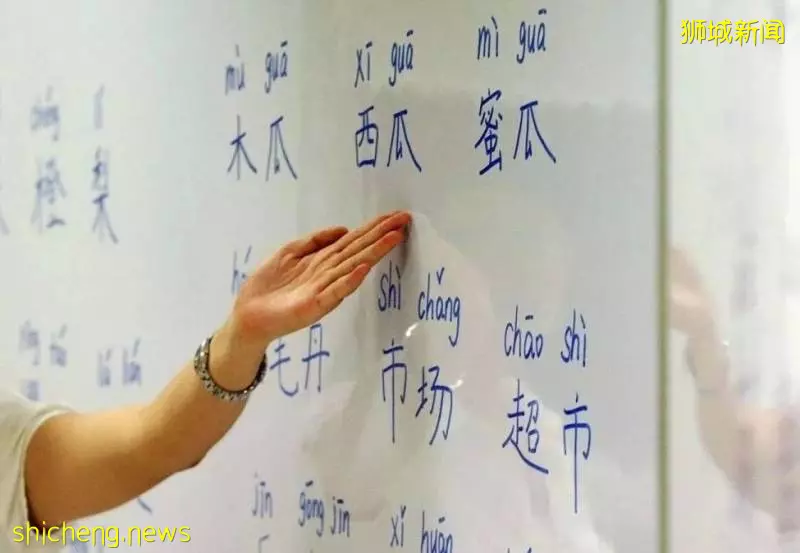 狮城新闻
mù guā
xī guā
mì guā
木瓜
西瓜
蜜瓜
橙 梨
shì chǎng
chāo shì
毛丹
市场
超市
jīn gōng jīn
xǐ huān
shicheng.news